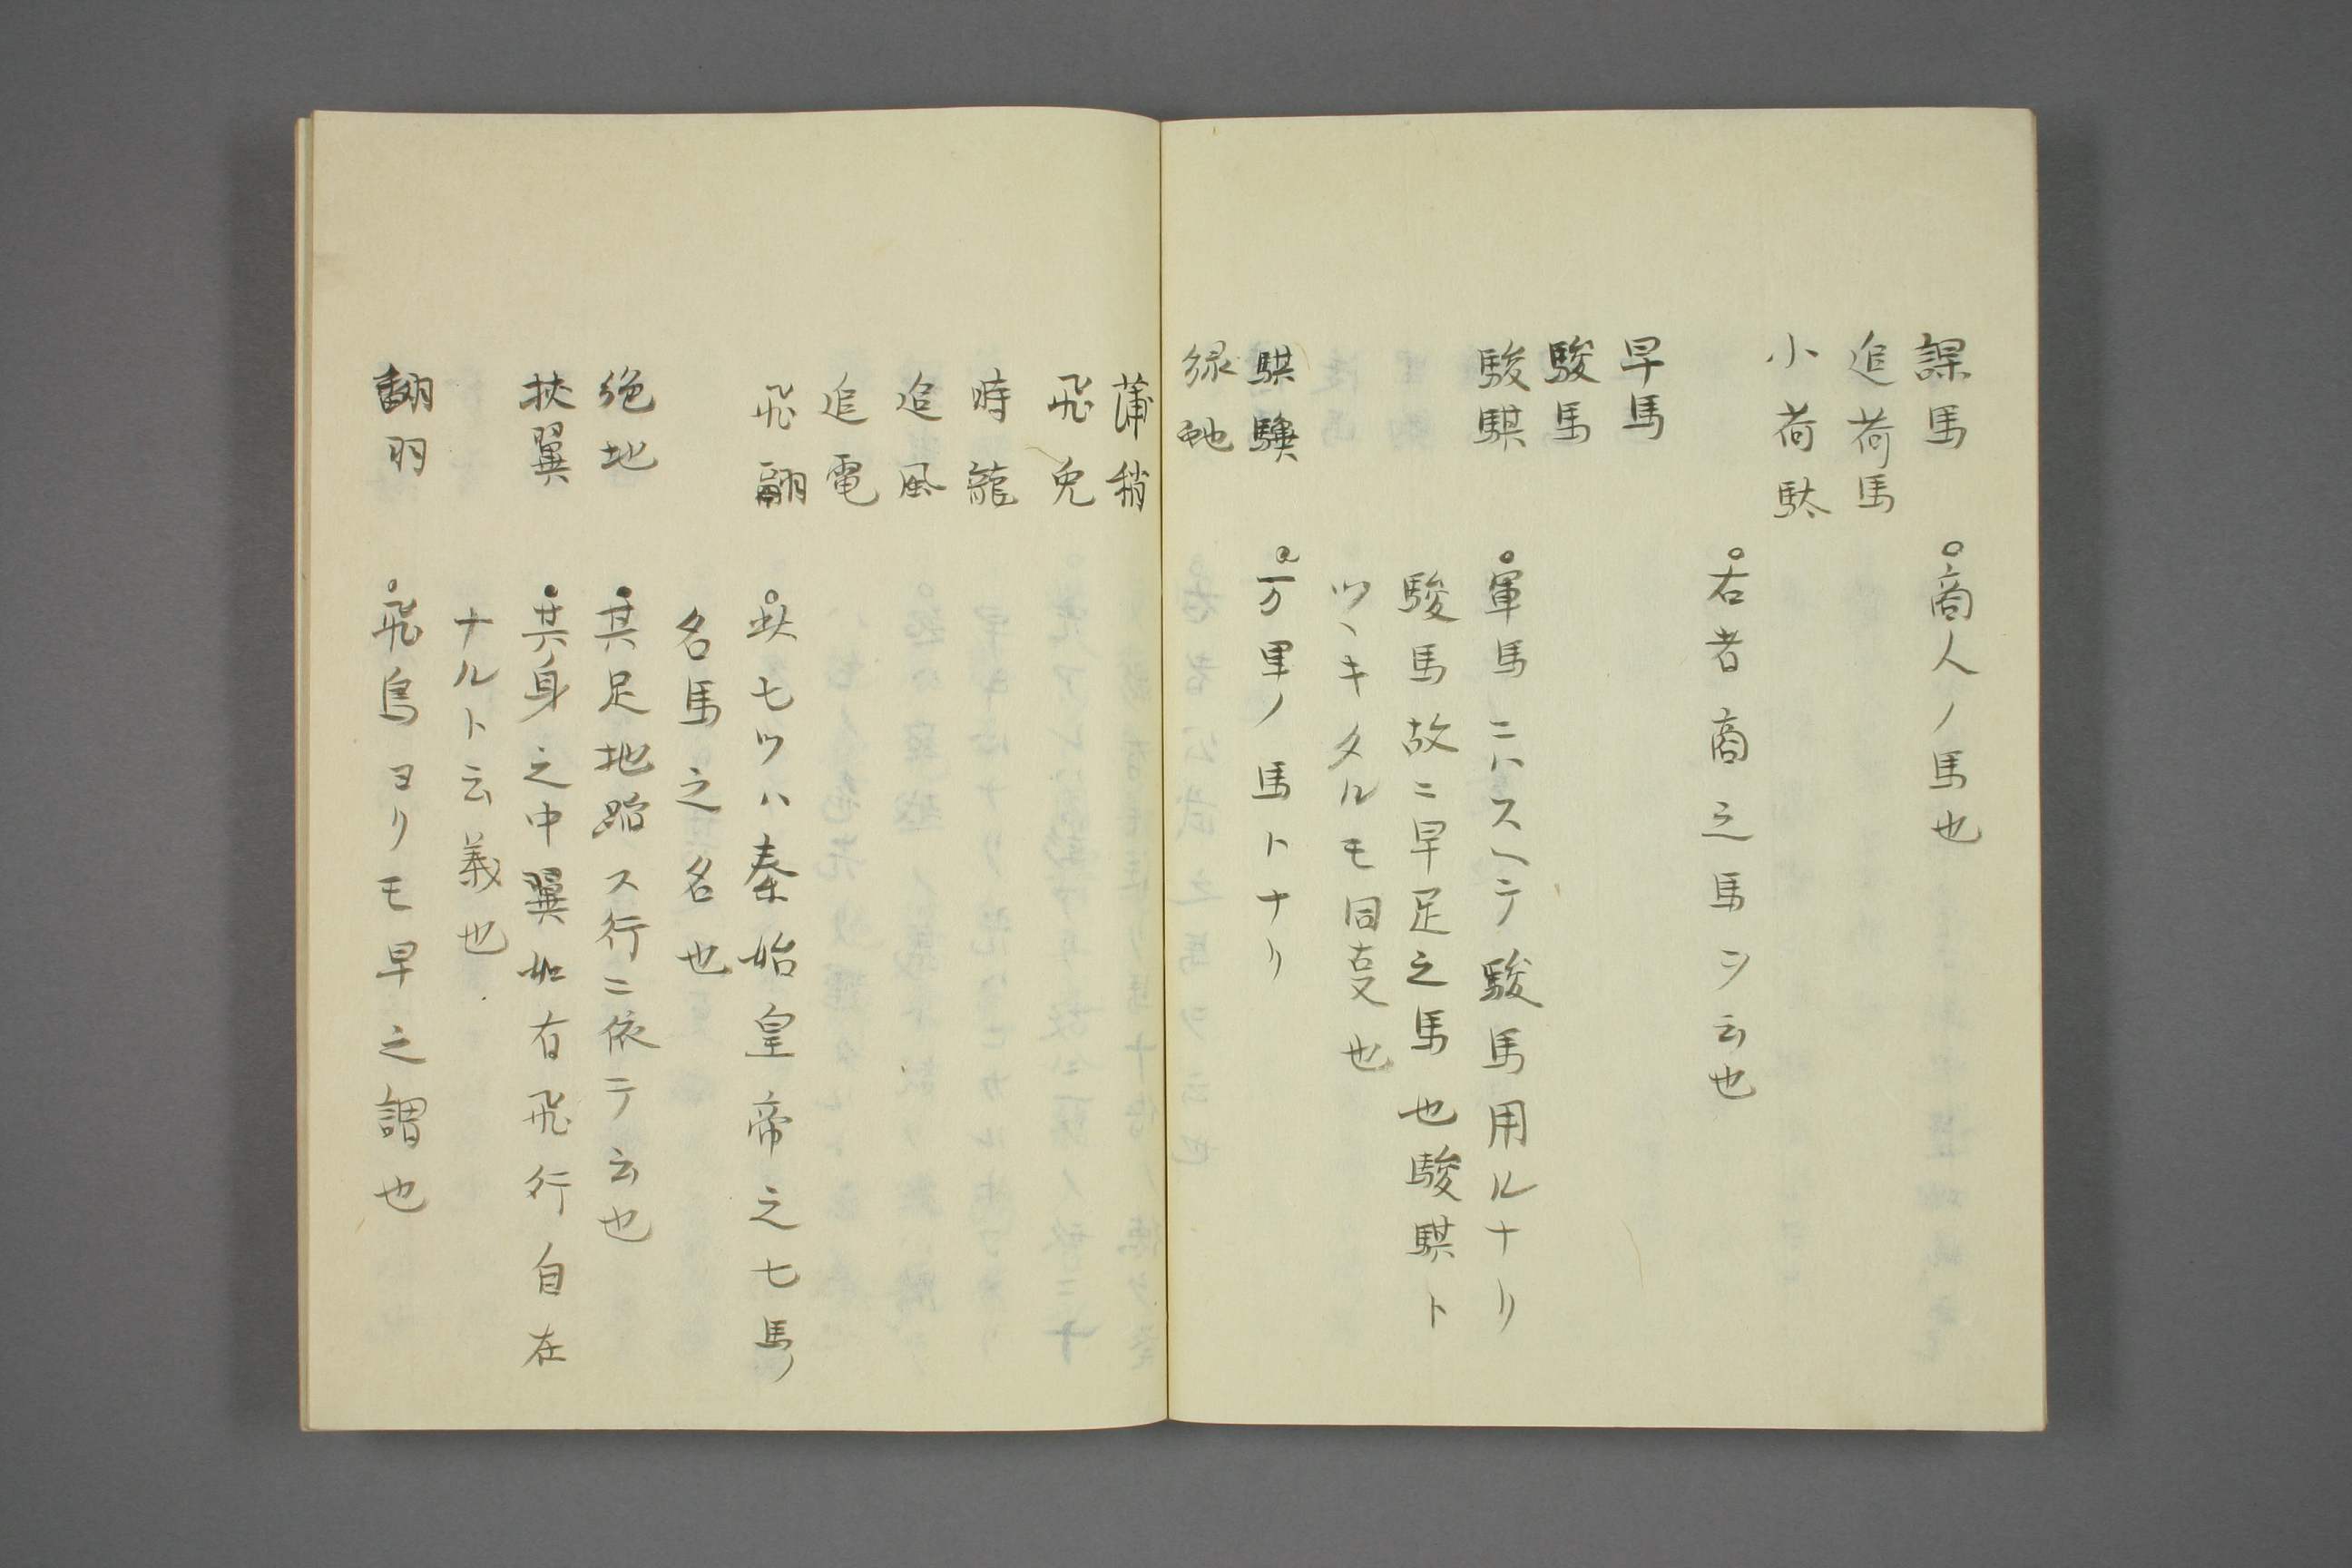 課馬 ○商人ノ馬也
追荷馬
小荷駄
○右者商之馬ヲ云也
早馬
駿馬
駿騏 ○軍馬ニハスヘテ駿馬用ルナリ
駿馬故ニ早足之馬也駿騏ト
ツヽキタルモ同㕝也
騏驥 ○万里ノ馬トナリ
緑虵
蒲稍
飛兔
時龍
追風
追電
飛翩 ○此七ツハ秦始皇帝之七馬ノ
名馬之名也
絶地 ○其足地蹈ス行ニ依テ云也
挾翼 ○其身之中翼如有飛行自在
ナルト云義也
翻羽 ○飛鳥ヨリモ早之謂也